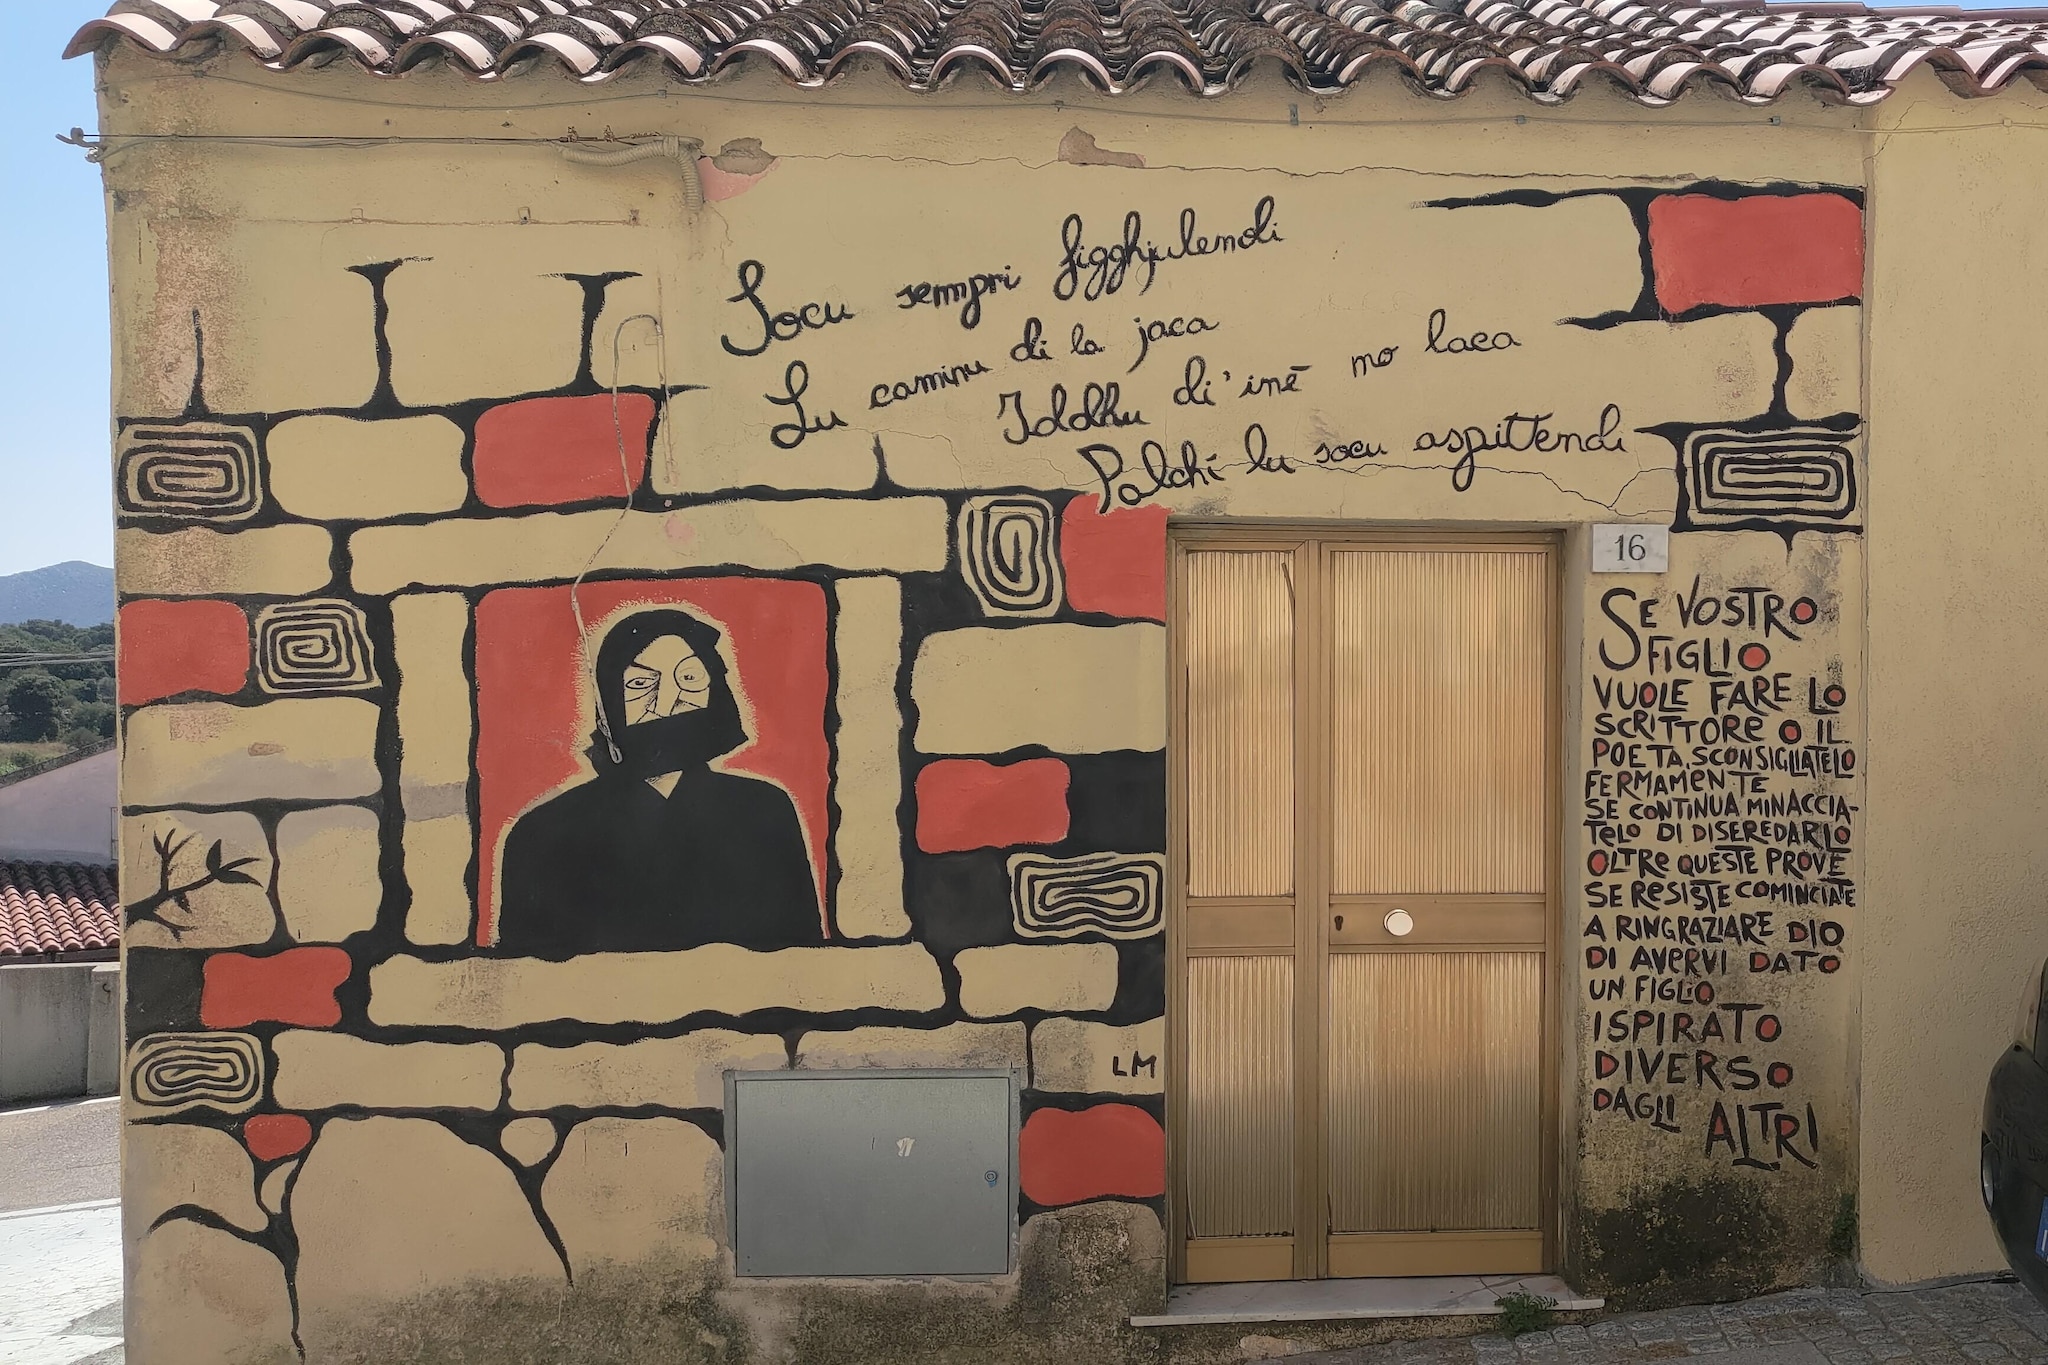 Socu sempri figghjulendi
Lu caminu di la jaca
Iddhu di' inè no laca
Palchí lu socu aspittendi
16
SE VOSTRO
FIGLIO
VUOLE FARE LO
SCRITTORE O IL
POETA, SCONSIGLIATELO
FERMAMENTE
SE CONTINUA MINACCIA-
TELO DI DISEREDARLO
OLTRE QUESTE PROVE
SE RESISTE COMINCIATE
A RINGRAZIARE DIO
DI AVERVI DATO
UN FIGLIO
ISPIRATO
DIVERSO
DAGLI
ALTRI
LM